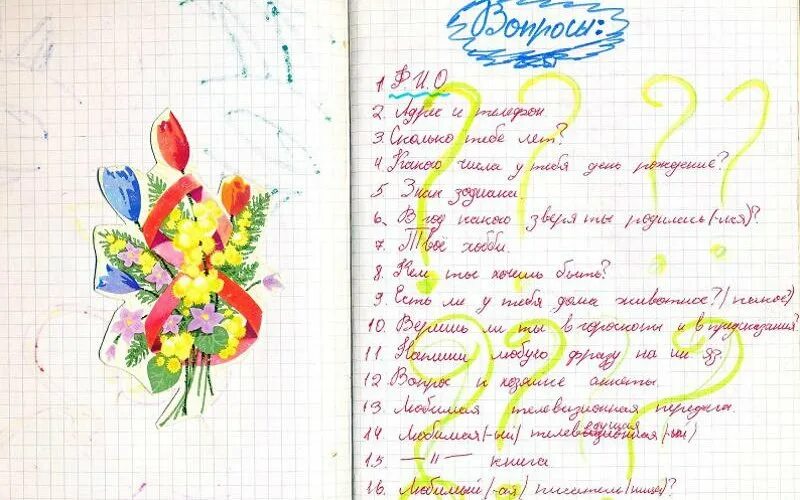 Вопросы:
1. Ф.И.О
2. Адрес и телефон
3. Сколько тебе лет?
4. Какого числа у тебя день рождение?
5. Знак зодиака.
6. В год какого зверя ты родились(-лся)?
7. Твоё хобби.
8. Кем ты хочешь быть?
9. Есть ли у тебя дома животное?
10. Веришь ли ты в гороскопы и в предсказания?
11. Напиши любую фразу на ин яз.
12. Вопрос к хозяйке анкеты.
13. Любимая телевизионная передача.
14. Любимая(-ый) телеведущая(-ый)
15. —"— книга
16. Любимый(-ая) писатель